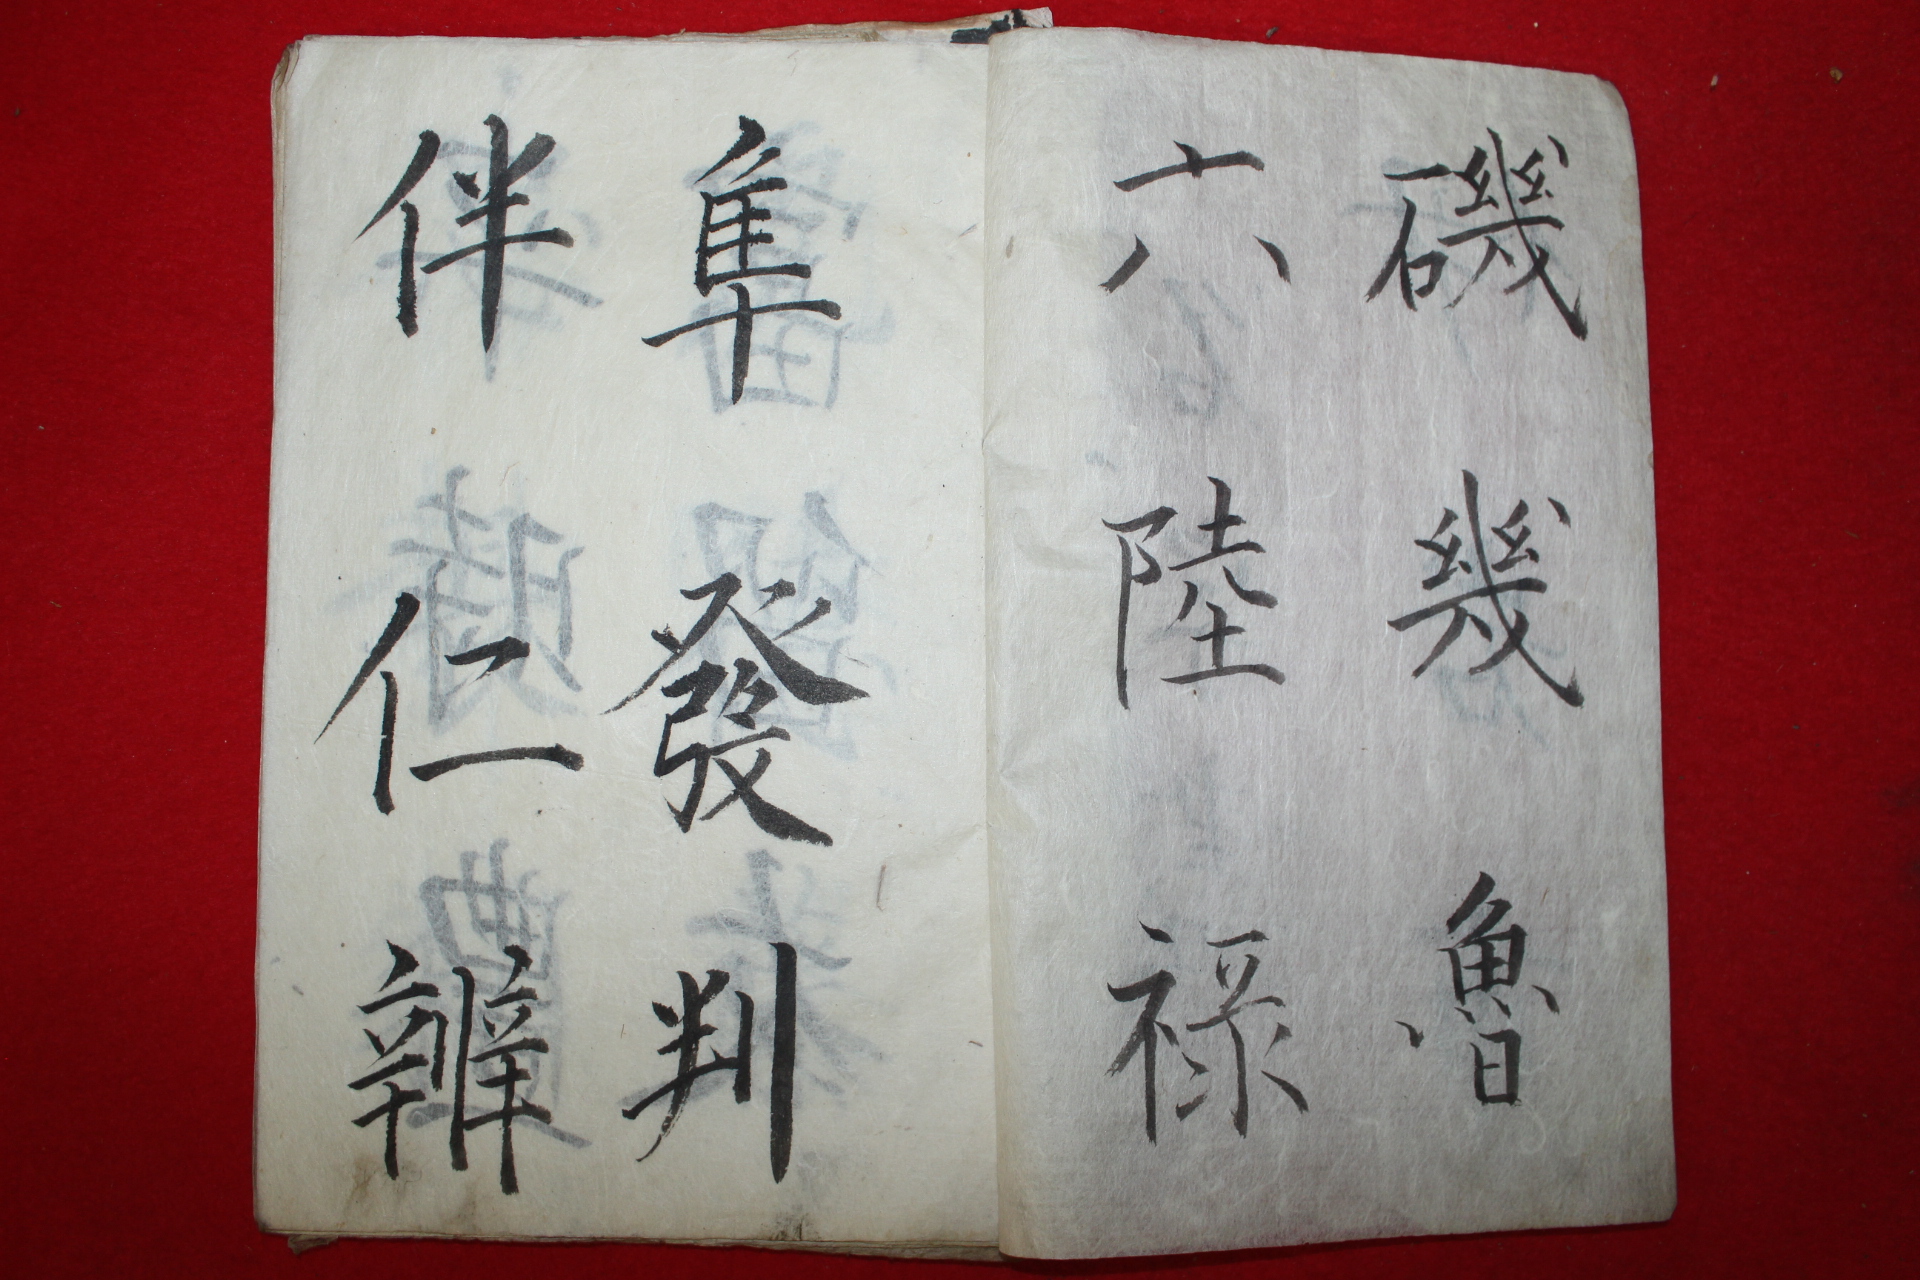 磯幾魯
六陸禄
隼發判
伴仁辨